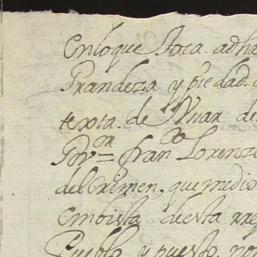 Enloque toca. adha
Grandeza y piedad.
texta. de Nuar de
Gov.or = fran.co Lorenzo
del crimen. que medio
embista cuesta
Pueblo y puesto. por